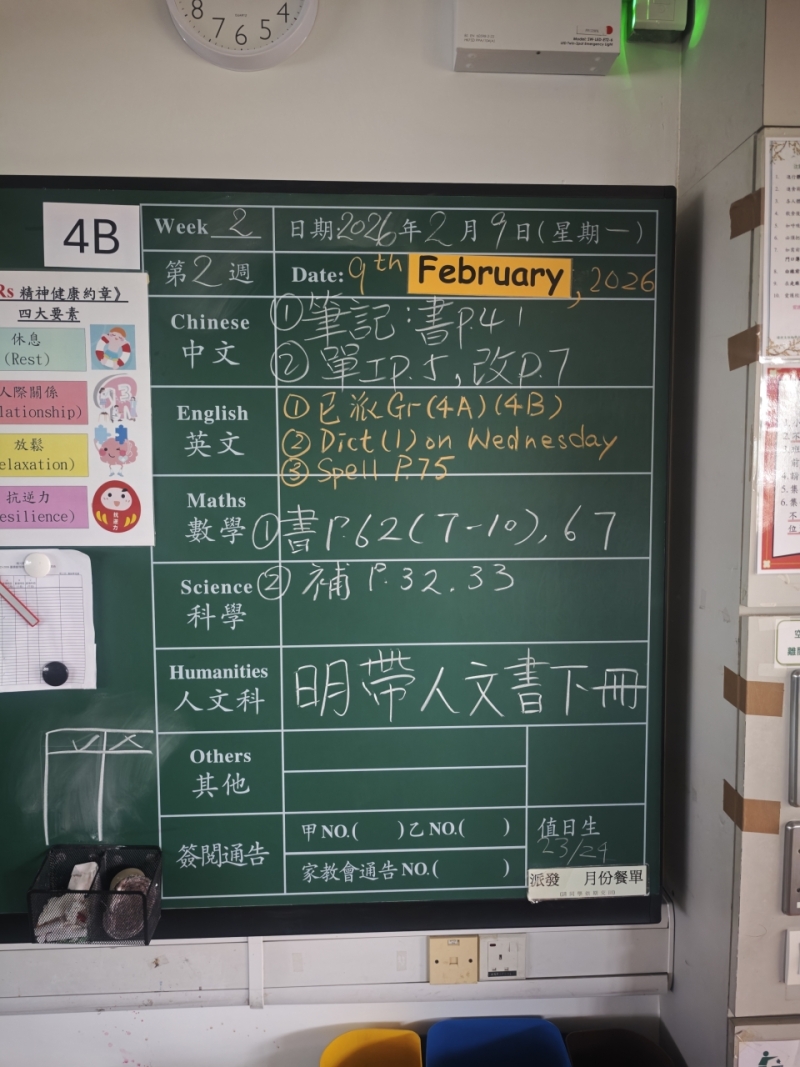 8 7 6 5 4
4B
Week 2
日期2026年2月9日(星期一)
第2週
Date: 9th February, 2026
Rs 精神健康約章》
四大要素
休息
(Rest)
人際關係
lationship)
放鬆
elaxation)
抗逆力
esilience)
抗逆力
Chinese
中文
①筆記:書P.41
②單工P.5,改P.7
English
英文
①已派Gr(4A)(4B)
②Dict(1) on Wednesday
③Spell P.75
Maths
數學
①書P.62(7-10),67
Science
科學
②補 P.32.33
Humanities
人文科
明帶人文書下冊
Others
其他
簽閱通告
甲NO.( )乙NO.( )
家教會通告NO.( )
值日生
23/24
派發 月份餐單